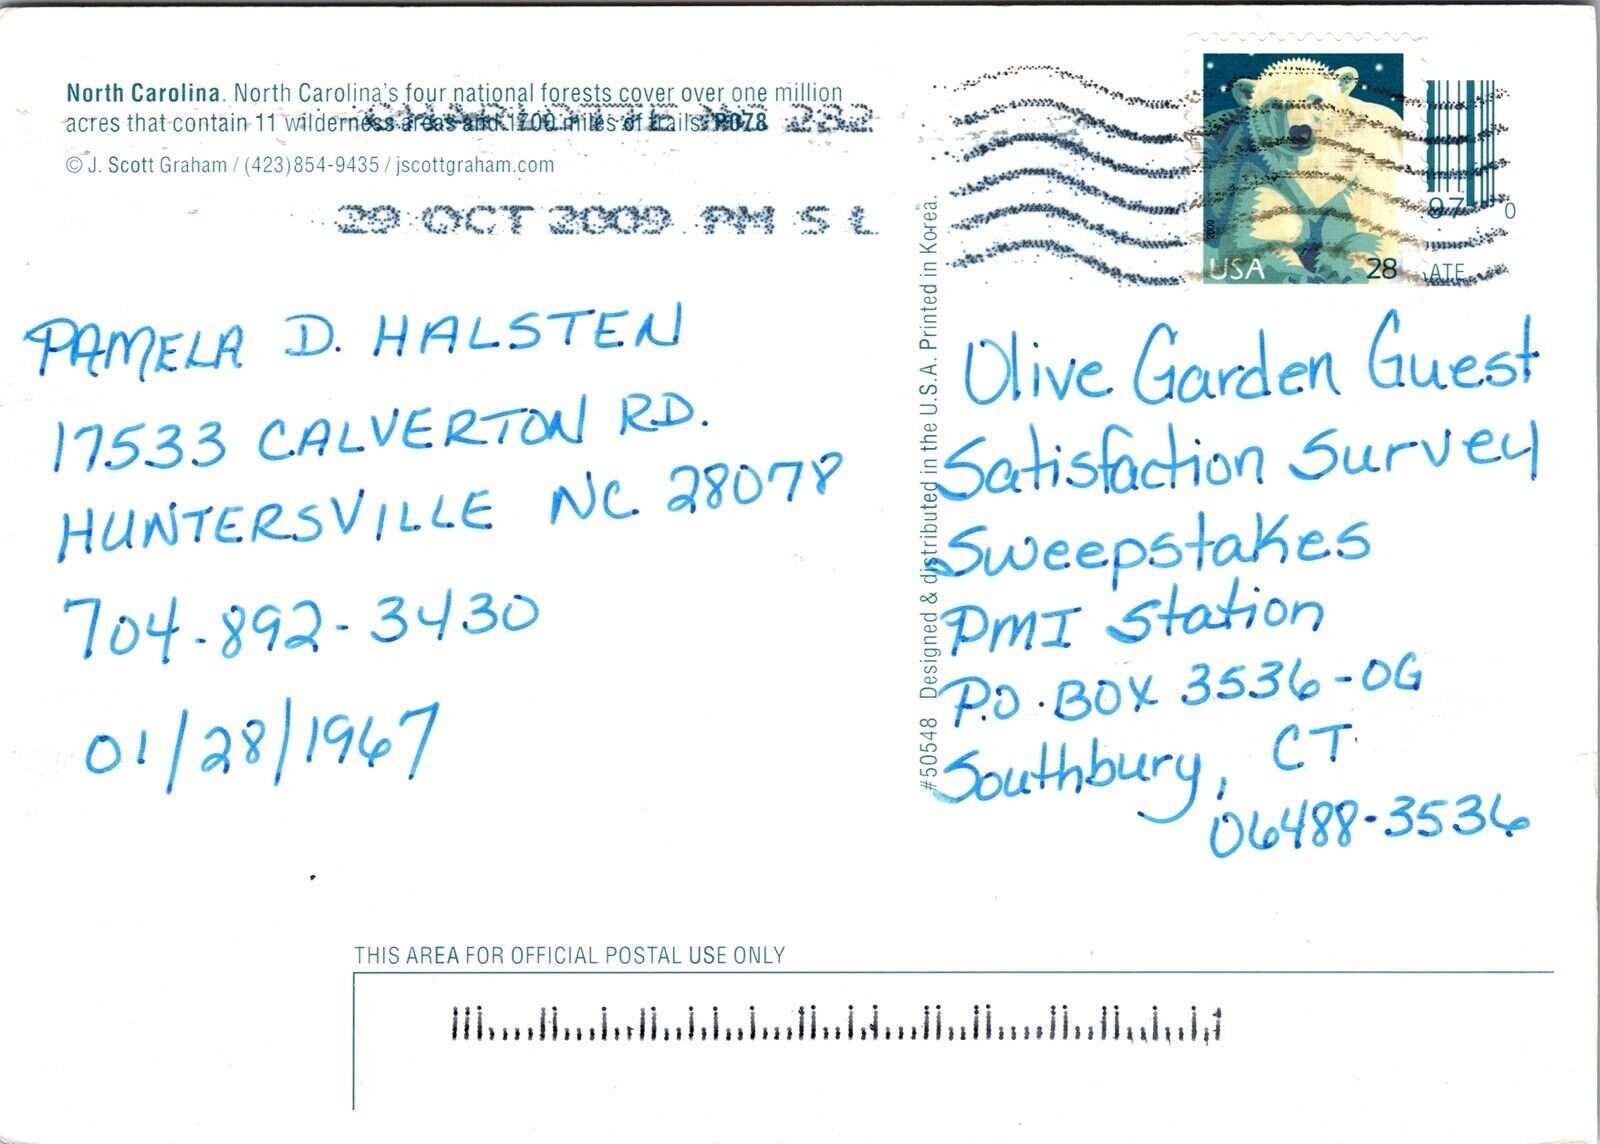 North Carolina. North Carolina's four national forests cover over one million
acres that contain 11 wilderness areas and 1700 miles of trails. P078
© J. Scott Graham / (423)854-9435 / jscottgraham.com
CHARLOTTE NC 282
29 OCT 2009 PM 5 L
PAMELA D. HALSTEN
17533 CALVERTON RD.
HUNTERSVILLE NC 28078
704-892-3430
01/28/1967
#50548 Designed & distributed in the U.S.A. Printed in Korea.
2009
USA 28
97 0
ATE
Olive Garden Guest
Satisfaction Survey
Sweepstakes
PMI Station
P.O. BOX 3536-OG
Southbury, CT
06488-3536
THIS AREA FOR OFFICIAL POSTAL USE ONLY